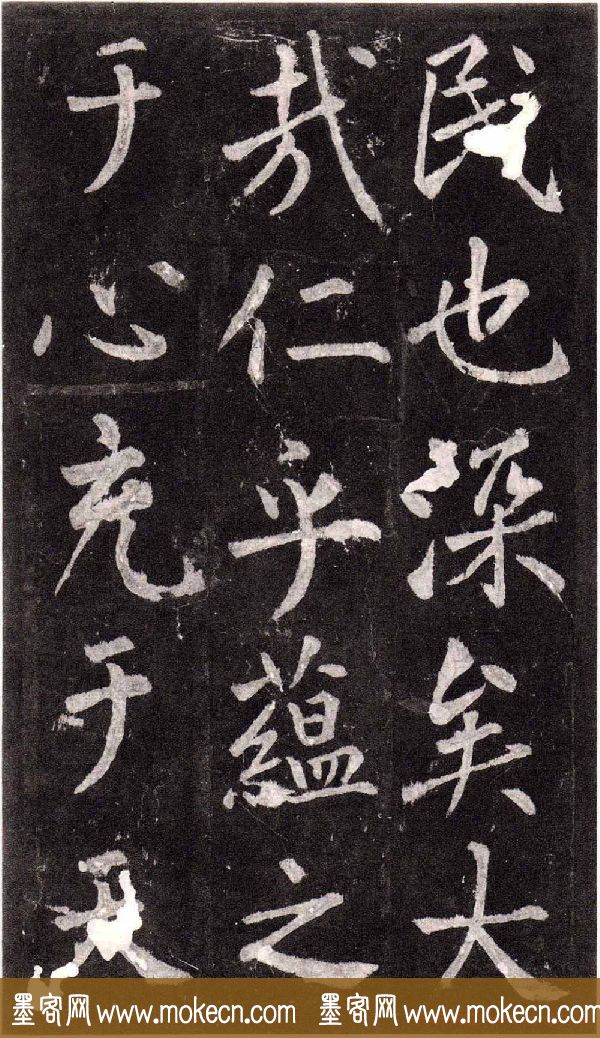 民也深矣大
哉仁乎蘊之
于心充于天
墨客网 www.mokecn.com 墨客网 www.mokecn.com